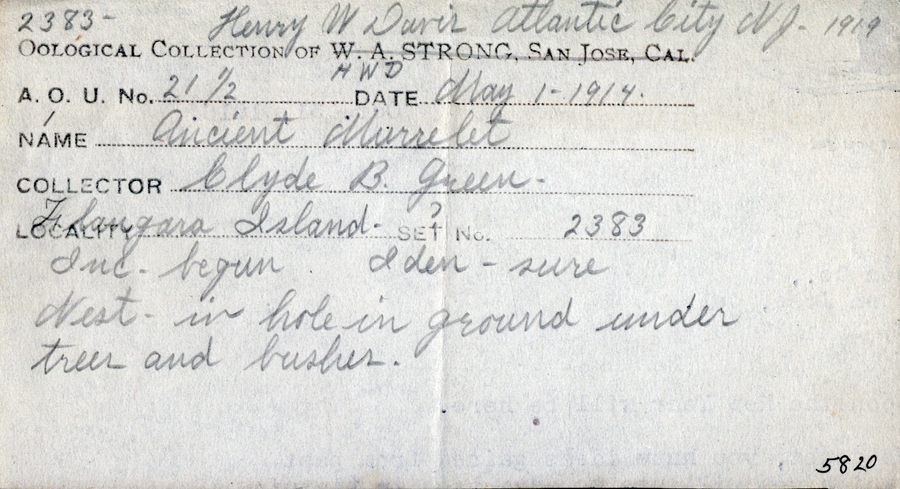 2383- Henry W Davis Atlantic City N J- 1919
OOLOGICAL COLLECTION OF W. A. STRONG, SAN JOSE, CAL.
H W D
A. O. U. No. 21 1/2 DATE May 1-1914.
NAME Ancient Murrelet
COLLECTOR Clyde B. Green-
LOCALITY Langara Island- SET No. ? 2383
Inc- begun Iden- sure
Nest- in hole in ground under
trees and bushes.
5820